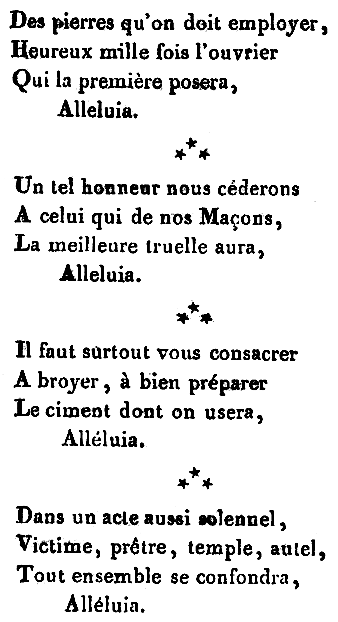 Des pierres qu'on doit employer,
Heureux mille fois l'ouvrier
Qui la première posera,
Alleluia.
Un tel honneur nous céderons
A celui qui de nos Maçons,
La meilleure truelle aura,
Alleluia.
Il faut surtout vous consacrer
A broyer, à bien préparer
Le ciment dont on usera,
Alléluia.
Dans un acte aussi solennel,
Victime, prêtre, temple, autel,
Tout ensemble se confondra,
Alléluia.